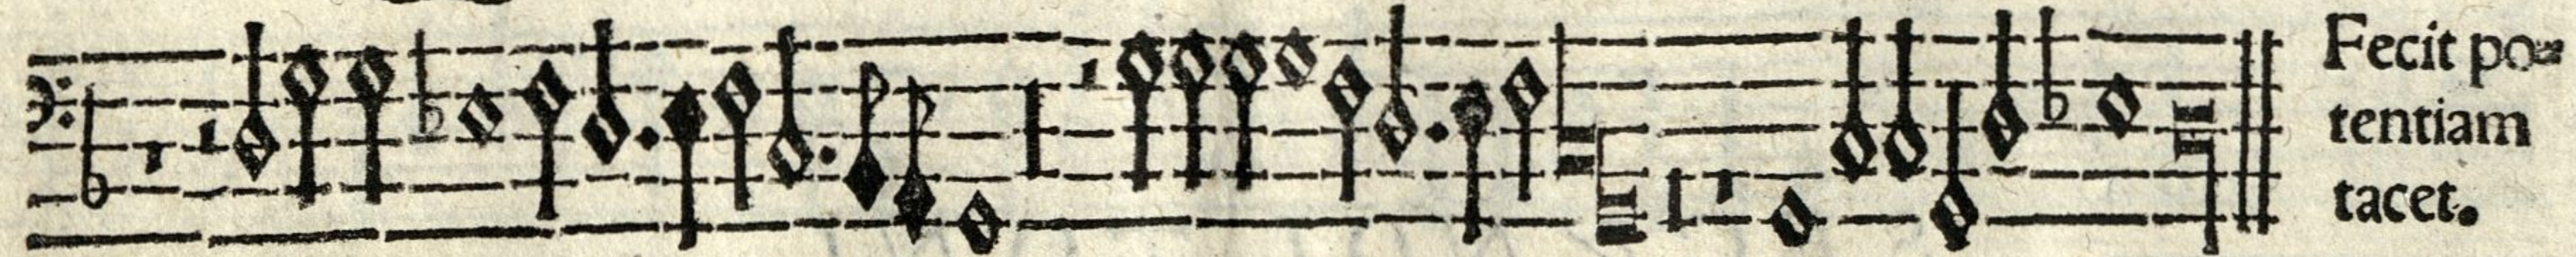 Fecit po=
tentiam
tacet.